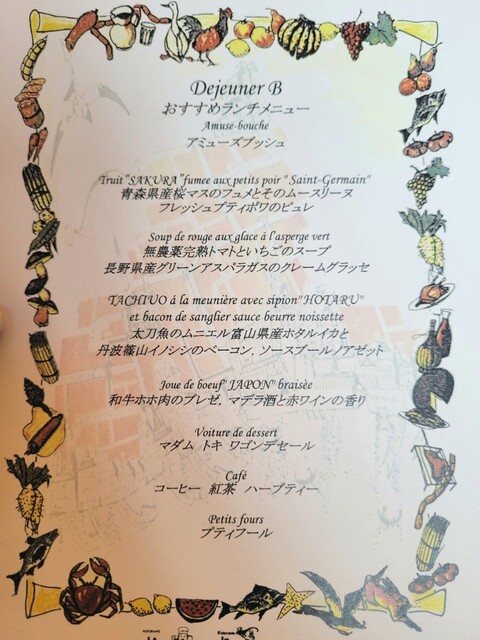 Dejeuner B
おすすめランチメニュー
Amuse-bouche
アミューズブッシュ
Truit "SAKURA" fumee aux petits poir " Saint-Germain"
青森県産桜マスのフュメとそのムースリーヌ
フレッシュプティポワのピュレ
Soup de rouge aux glace á l'asperge vert
無農薬完熟トマトといちごのスープ
長野県産グリーンアスパラガスのクレームグラッセ
TACHIUO á la meunière avec sipion"HOTARU"
et bacon de sanglier sauce beurre noissette
太刀魚のムニエル富山県産ホタルイカと
丹波篠山イノシシのベーコン．ソースブールノアゼット
Joue de boeuf" JAPON" braisèe
和牛ホホ肉のブレゼ．マデラ酒と赤ワインの香り
Voiture de dessert
マダム トキ ワゴンデセール
Café
コーヒー 紅茶 ハーブティー
Petits fours
プティフール